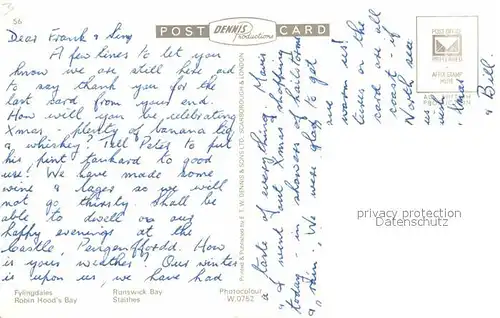 56
POST DENNIS Productions CARD
Dear Frank &
A few lines to let you
know we are still here and
to say thank you for the
last card from your end.
How will you be celebrating
Xmas, plenty of banana liq
& whiskey? Tell Peter to put
his pint tankard to good
use! We have made some
wine & lager so we will
not go thirsty. Shall be
able to dwell on our
happy evenings at the
Castle, Pengenffordd. How
is your weather? Our winter
is upon us, we have had
Fylingdales
Robin Hood's Bay
Runswick Bay
Staithes
Photocolour
W.0762
Printed & Published by E. T. W. DENNIS & SONS LTD. SCARBOROUGH & LONDON
a taste of everything. Mavis
& I went out Xmas shopping
today - in showers of hailstones
& rain. We were glad to get
warm
us!
card are all
coast - if
North sea
us
with
& Bill
POST OFFICE
PREFERRED
AFFIX STAMP
HERE
privacy protection
DatenSchutz